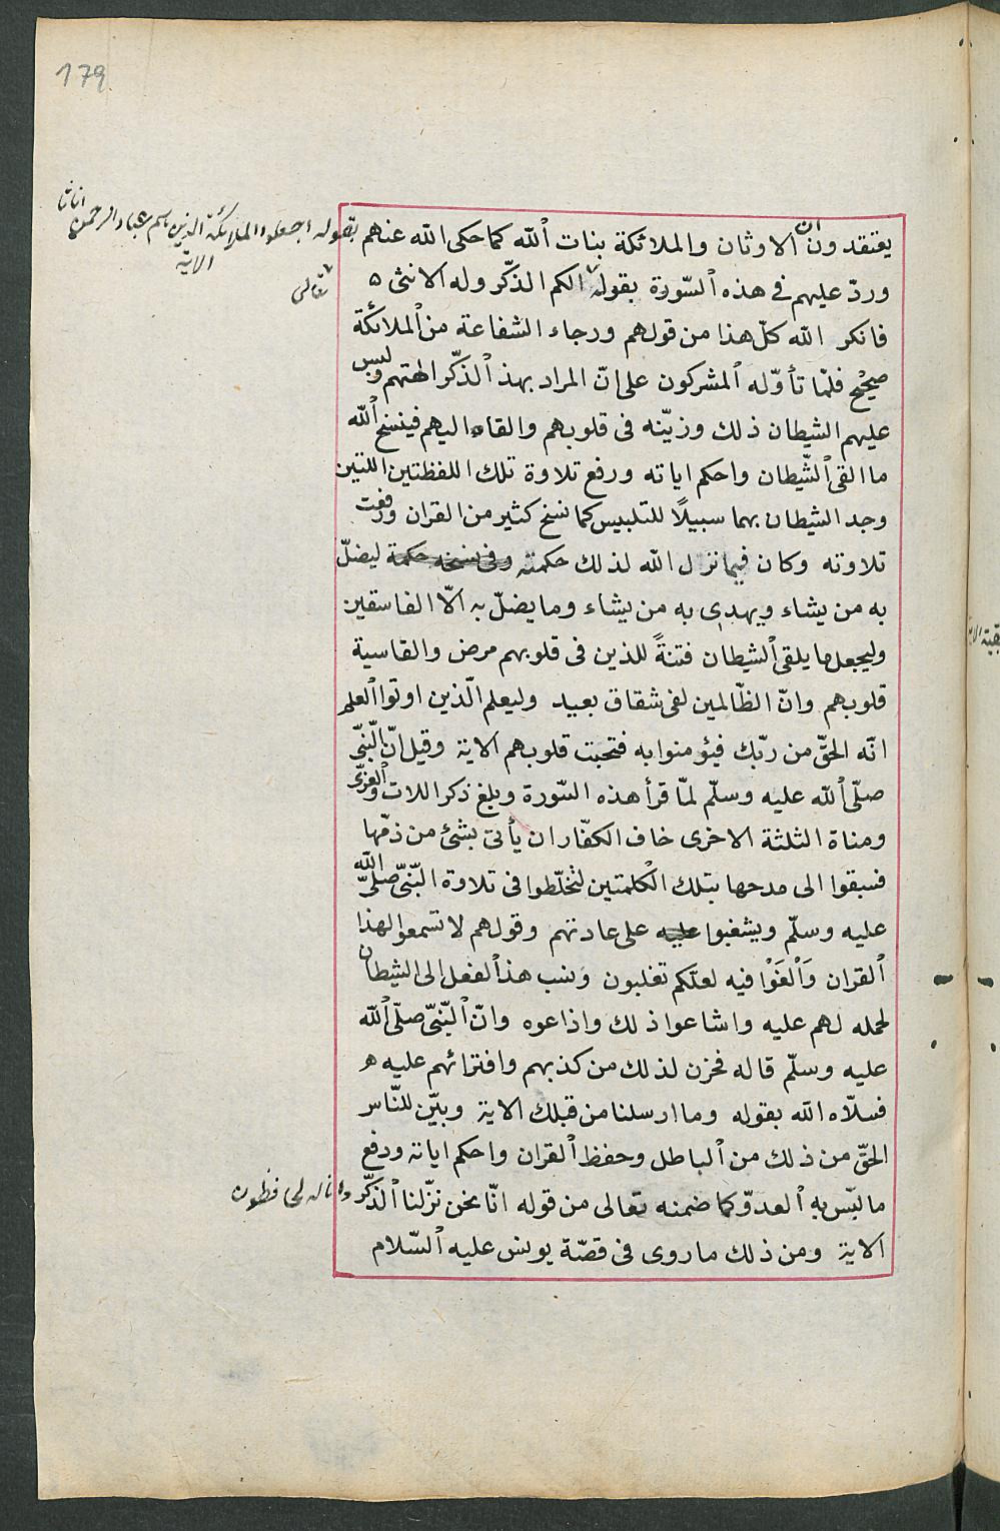 179
يعتقدون ان الاوثان والملائكة بنات الله كما حكى الله عنهم
بقوله اجعلوا الملائكة الذين هم عباد الرحمن اناثا
الاية
وردّ عليهم فى هذه السّورة بقوله الكم الذّكر وله الانثى ٥
تعالى
فانكر الله كلّ هذا من قولهم ورجاء الشفاعة من الملائكة
صحيح فلمّا تأوّله المشركون على انّ المراد بهذا الذّكر الهتهم ولبس
عليهم الشيطان ذلك وزيّنه فى قلوبهم والقاه اليهم فينسخ الله
ما القى الشّيطان واحكم اياته ورفع تلاوة تلك اللفظتين اللتين
وجد الشيطان بهما سبيلًا للتلبيس كما نسخ كثير من القران ورفعت
تلاوته وكان فيما نزل الله لذلك حكمته وفى نسخه حكمة ليضلّ
به من يشاء ويهدى به من يشاء وما يضلّ به الّا الفاسقين
وليجعل ما يلقى الشيطان فتنةً للذين فى قلوبهم مرض والقاسية
قلوبهم وانّ الظّالمين لفى شقاق بعيد وليعلم الّذين اوتوا العلم
انّه الحقّ من ربّك فيؤمنوا به فتخبت قلوبهم الاية وقيل انّ النّبىّ
صلّى الله عليه وسلّم لمّا قرأ هذه السّورة وبلغ ذكر اللات والعزّى
ومناة الثلثة الاخرى خاف الكفّار ان يأتى بشئ من ذمّها
فسبقوا الى مدحها بتلك الكلمتين لتخلّطوا فى تلاوة النّبىّ صلّى الله
عليه وسلّم ويشغبوا عليه على عادتهم وقولهم لا تسمعوا لهذا
القران وَالْغَوْا فيه لعلّكم تغلبون ونسب هذا الفعل الى الشيطان
لحمله لهم عليه واشاعوا ذلك واذاعوه وانّ النّبىّ صلّى الله
عليه وسلّم قاله فحزن لذلك من كذبهم وافترائهم عليه
فسلّاه الله بقوله وما ارسلنا من قبلك الاية وبيّن للنّاس
الحقّ من ذلك من الباطل وحفظ القران واحكم اياته ودفع
ما لبّس به العدوّ كما ضمنه تعالى من قوله انّا نحن نزّلنا الذّكر
وانا له لحافظون
الاية ومن ذلك ما روى فى قصّة يونس عليه السّلام